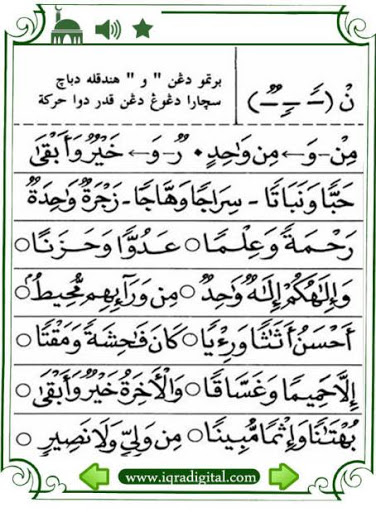 نْ (ـًـ ـٍـ ـٌـ) برتمو دڠن " و " هندقله دباچ
سچارا دڠوڠ دڠن قدر دوا حركة
مِنْ - وَ ← مِن وَٰحِدٍ • رٌ - وَ ← خَيْرٌ وَأَبْقَىٰ
حَبًّا وَنَبَاتًا - سِرَاجًا وَهَّاجًا - زَجْرَةٌ وَٰحِدَةٌ
رَحْمَةً وَعِلْمًا ○ عَدُوًّا وَحَزَنًا ○
وَإِلَٰهُكُمْ إِلَٰهٌ وَٰحِدٌ ○ مِن وَرَآءِهِم مُّحِيطٌ ○
أَحْسَنُ أَثَٰثًا وَرِءْيًا ○ كَانَ فَٰحِشَةً وَمَقْتًا ○
إِلَّا حَمِيمًا وَغَسَّاقًا ○ وَالْأَخِرَةُ خَيْرٌ وَأَبْقَىٰ ○
بُهْتَٰنًا وَإِثْمًا مُّبِينًا ○ مِن وَلِيٍّ وَلَا نَصِيرٍ ○
www.iqradigital.com